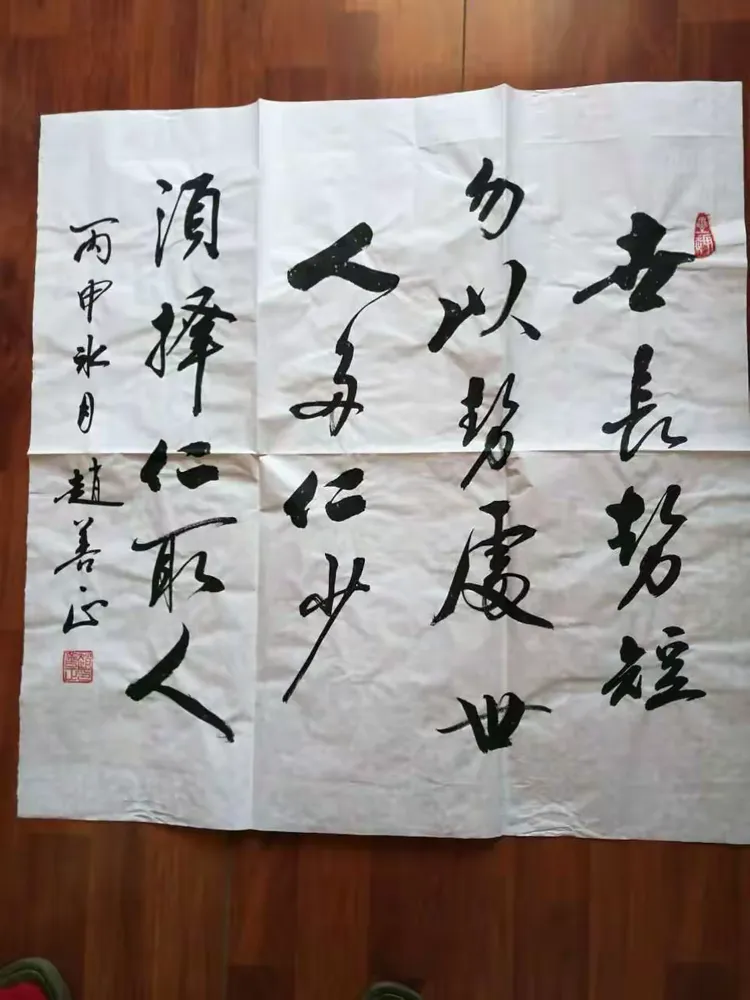 世長勢短
勿以勢處世
人多仁少
須擇仁取人
丙申冰月 趙善正